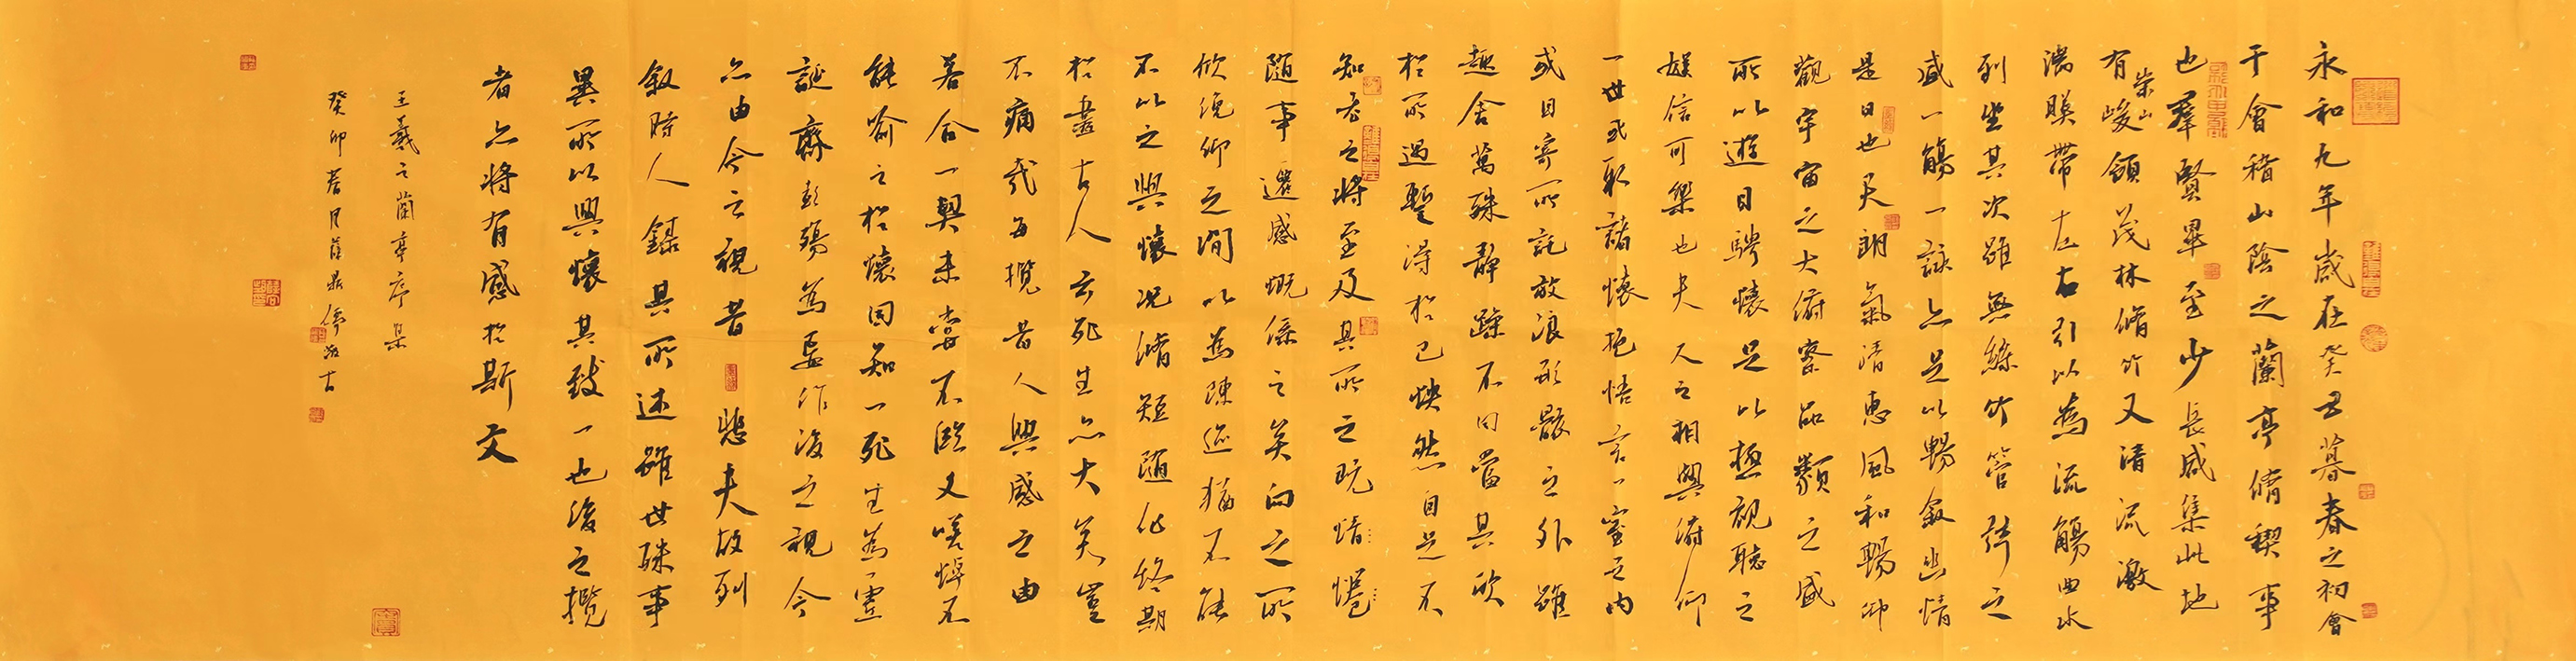 永和九年歲在癸丑暮春之初會
于會稽山陰之蘭亭脩稧事
也羣賢畢至少長咸集此地
有崇山峻領茂林脩竹又清流激
湍暎帶左右引以為流觴曲水
列坐其次雖無絲竹管弦之
盛一觴一詠亦足以暢敘幽情
是日也天朗氣清惠風和暢仰
觀宇宙之大俯察品類之盛
所以遊目騁懷足以極視聽之
娛信可樂也夫人之相與俯仰
一世或取諸懷抱悟言一室之內
或因寄所託放浪形骸之外雖
趣舍萬殊靜躁不同當其欣
於所遇暫得於己怏然自足不
知老之將至及其所之既惓
隨事遷感慨係之矣向之所
欣俛仰之閒以為陳迹猶不能
不以之興懷況脩短隨化終期
於盡古人云死生亦大矣豈
不痛哉每攬昔人興感之由
若合一契未嘗不臨文嗟悼不
能喻之於懷固知一死生為虛
誕齊彭殤為妄作後之視今
亦由今之視昔 悲夫故列
敘時人錄其所述雖世殊事
異所以興懷其致一也後之攬
者亦將有感於斯文
王羲之蘭亭序集
癸卯